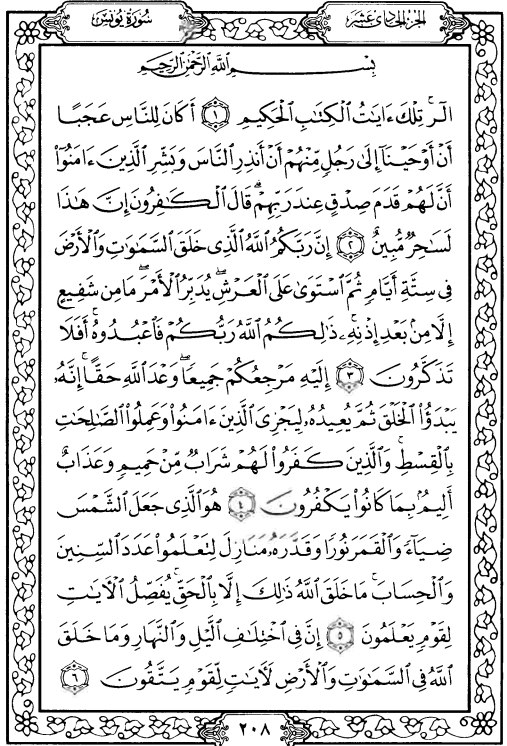 سُورَةُ يُونُسَ
الجُزْءُ الحَادِي عَشَرَ
بِسْمِ اللَّهِ الرَّحْمَٰنِ الرَّحِيمِ
الٓر ۚ تِلْكَ ءَايَٰتُ الْكِتَٰبِ الْحَكِيمِ ١ أَكَانَ لِلنَّاسِ عَجَبًا
أَنْ أَوْحَيْنَآ إِلَىٰ رَجُلٍ مِّنْهُمْ أَنْ أَنذِرِ النَّاسَ وَبَشِّرِ الَّذِينَ ءَامَنُوٓا۟
أَنَّ لَهُمْ قَدَمَ صِدْقٍ عِندَ رَبِّهِمْ ۗ قَالَ الْكَٰفِرُونَ إِنَّ هَٰذَا
لَسَٰحِرٌ مُّبِينٌ ٢ إِنَّ رَبَّكُمُ اللَّهُ الَّذِى خَلَقَ السَّمَٰوَٰتِ وَالْأَرْضَ
فِى سِتَّةِ أَيَّامٍ ثُمَّ اسْتَوَىٰ عَلَى الْعَرْشِ ۖ يُدَبِّرُ الْأَمْرَ ۖ مَا مِن شَفِيعٍ
إِلَّا مِنۢ بَعْدِ إِذْنِهِۦ ۚ ذَٰلِكُمُ اللَّهُ رَبُّكُمْ فَاعْبُدُوهُ ۚ أَفَلَا
تَذَكَّرُونَ ٣ إِلَيْهِ مَرْجِعُكُمْ جَمِيعًا ۖ وَعْدَ اللَّهِ حَقًّا ۚ إِنَّهُۥ
يَبْدَؤُا۟ الْخَلْقَ ثُمَّ يُعِيدُهُۥ لِيَجْزِىَ الَّذِينَ ءَامَنُوا۟ وَعَمِلُوا۟ الصَّٰلِحَٰتِ
بِالْقِسْطِ ۚ وَالَّذِينَ كَفَرُوا۟ لَهُمْ شَرَابٌ مِّنْ حَمِيمٍ وَعَذَابٌ
أَلِيمٌۢ بِمَا كَانُوا۟ يَكْفُرُونَ ٤ هُوَ الَّذِى جَعَلَ الشَّمْسَ
ضِيَآءً وَالْقَمَرَ نُورًا وَقَدَّرَهُۥ مَنَازِلَ لِتَعْلَمُوا۟ عَدَدَ السِّنِينَ
وَالْحِسَابَ ۚ مَا خَلَقَ اللَّهُ ذَٰلِكَ إِلَّا بِالْحَقِّ ۚ يُفَصِّلُ الْءَايَٰتِ
لِقَوْمٍ يَعْلَمُونَ ٥ إِنَّ فِى اخْتِلَٰفِ الَّيْلِ وَالنَّهَارِ وَمَا خَلَقَ
اللَّهُ فِى السَّمَٰوَٰتِ وَالْأَرْضِ لَءَايَٰتٍ لِّقَوْمٍ يَتَّقُونَ ٦
٢٠٨